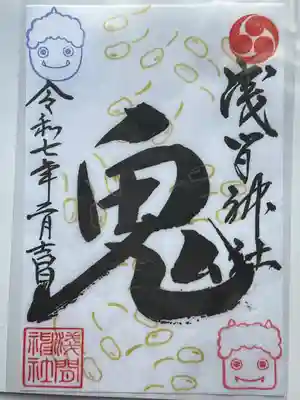 浅間神社
鬼
令和七年二月吉日
淺間
神社